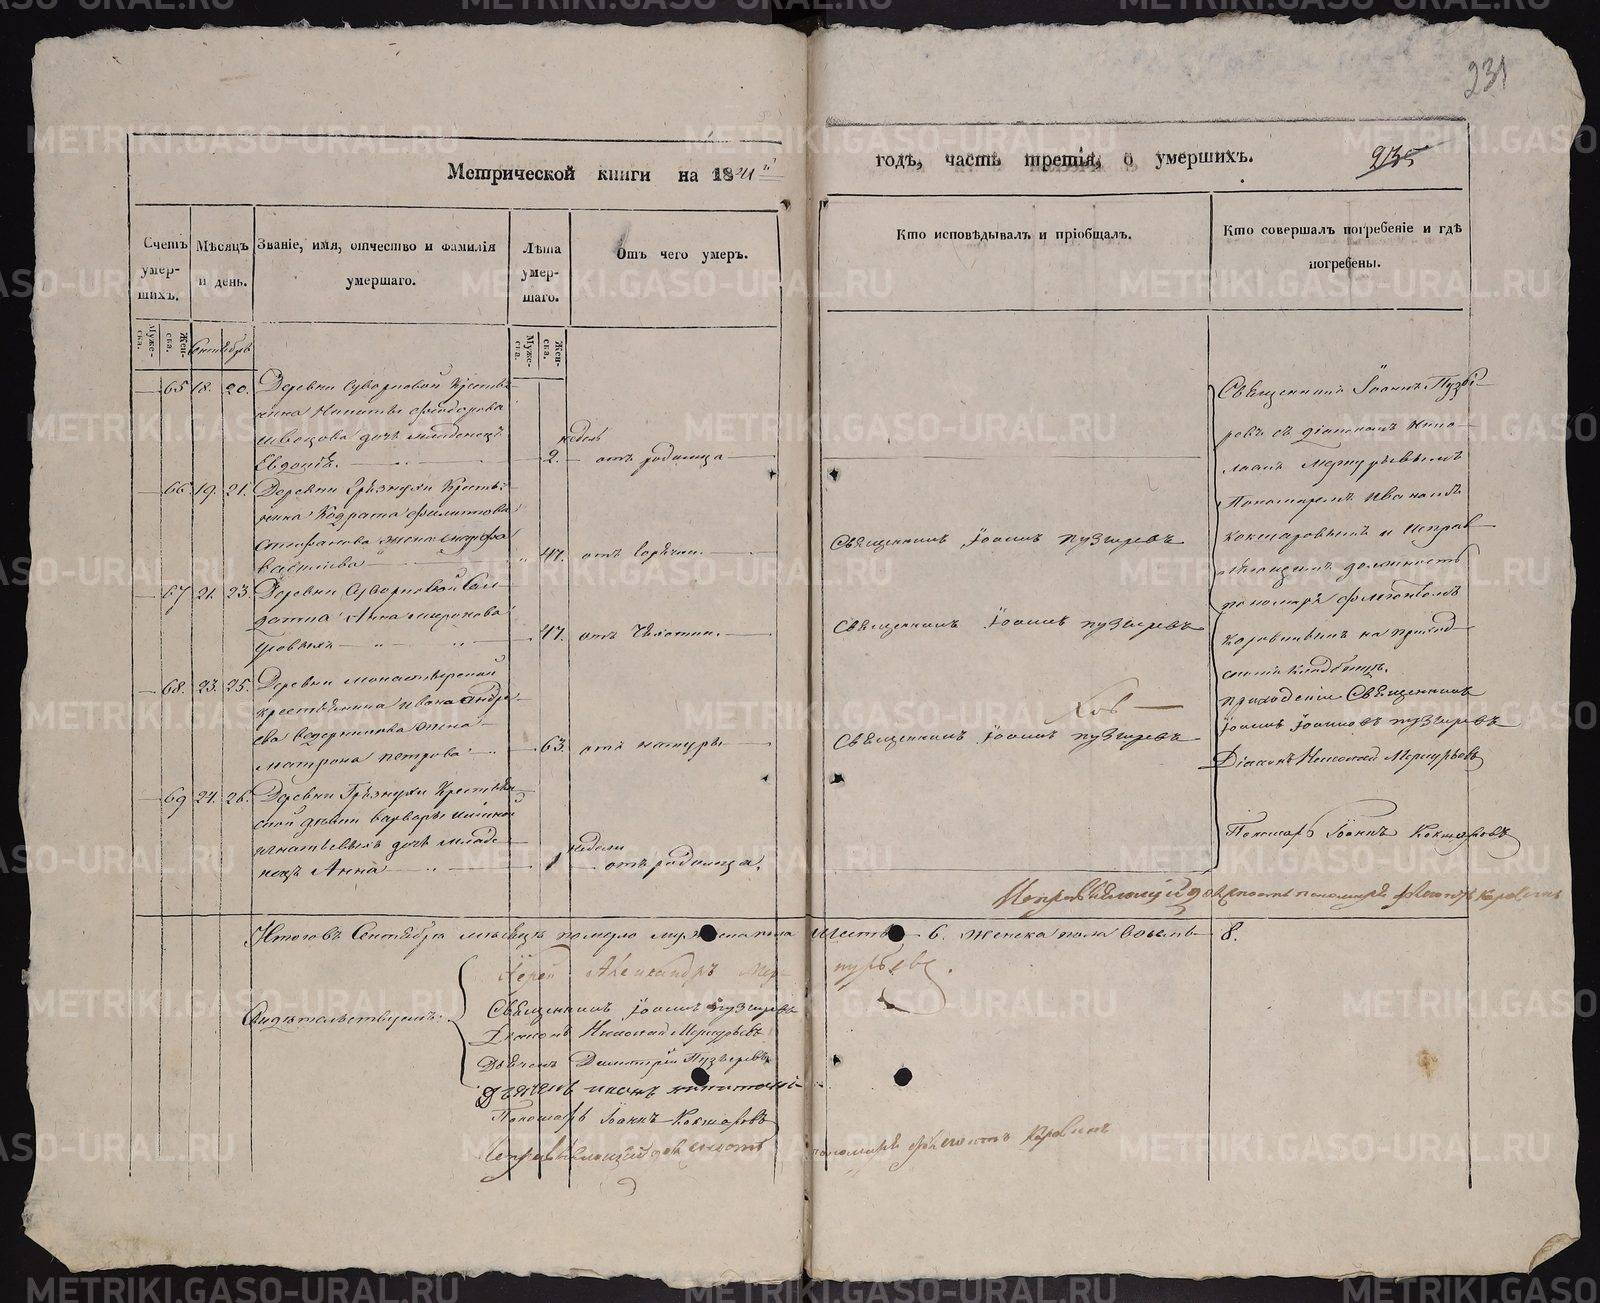 231
Метрической книги на 1841й
годъ, часть третія, о умершихъ.
235
Счетъ умершихъ.
Мѣсяцъ и день.
Званіе, имя, отчество и фамилія умершаго.
Лѣта умершаго.
Отъ чего умеръ.
Кто исповѣдывалъ и пріобщалъ.
Кто совершалъ погребеніе и гдѣ погребены.
Мужеска.
Женска.
Сентябрь
Мужеска.
Женска.
65 18. 20. Деревни Суворковой Крестья-
нина Никиты Феодорова
Швецова дочь младенецъ
Евдокія.
недель
2. отъ родимца
66 19. 21. Деревни Грязнухи Кресть-
янина Кодрата Филиппова
Стефанова жена
Васильева
47. отъ горячки.
Священникъ Іоаннъ Пузыревъ
67 21. 23. Деревни Суворковой Сол-
датка Анна Миронова
47. отъ чахотки.
Священникъ Іоаннъ Пузыревъ
68. 23. 25. Деревни Монастырской
крестьянина Ивана Андре-
ева Ведерникова жена
Матрона Петрова
63. отъ натуры
Священникъ Іоаннъ Пузыревъ
69 24. 26. Деревни Грязнухи Крестьян-
ской девки Варвары
Игнатьевыхъ дочь младе-
нецъ Анна
недели
1 отъ родимца.
Священникъ Іоаннъ Пузы-
ревъ съ діакономъ Нико-
лаемъ Меркурьевымъ
Пономаремъ Иваномъ
Кокшаровымъ и исправ-
ляющимъ должность
пономаря
Коровинымъ на приход-
скомъ кладбище.
Священникъ
Іоаннъ Іоанновъ Пузыревъ
Діаконъ Николай Меркурьевъ
Пономарь Іоаннъ Кокшаровъ
Исправляющій должность пономаря Коровинъ
Итого въ Сентябрѣ мѣсяцѣ померло мужеска пола шесть 6. женска пола восемь 8.
Свидѣтельствуемъ:
Іерей Александръ Меркурьевъ.
Священникъ Іоаннъ Пузыревъ
Діаконъ Николай Меркурьевъ
Дьячекъ Димитрій Пузыревъ
Дьячекъ
Пономарь Іоаннъ Кокшаровъ
Исправляющій должность пономаря Коровинъ
METRIKI.GASO-URAL.RU